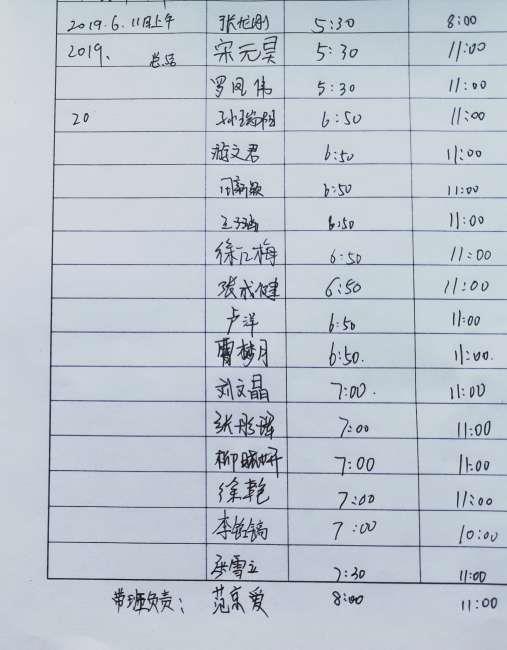 2019.6.11日上午 张龙刚 5:30 8:00
2019. 总结 宋元昊 5:30 11:00
罗凤伟 5:30 11:00
20 6:50 11:00
游文君 6:50 11:00
6:50 11:00
6:50 11:00
徐江梅 6:50 11:00
张成健 6:50 11:00
卢洋 6:50 11:00
曹梦月 6:50. 11:00.
刘文晶 7:00. 11:00
张彤晖 7:00 11:00
7:00 11:00
徐艳 7:00 11:00
7:00 10:00
张雪立 7:30 11:00
带班负责: 范京爱 8:00 11:00